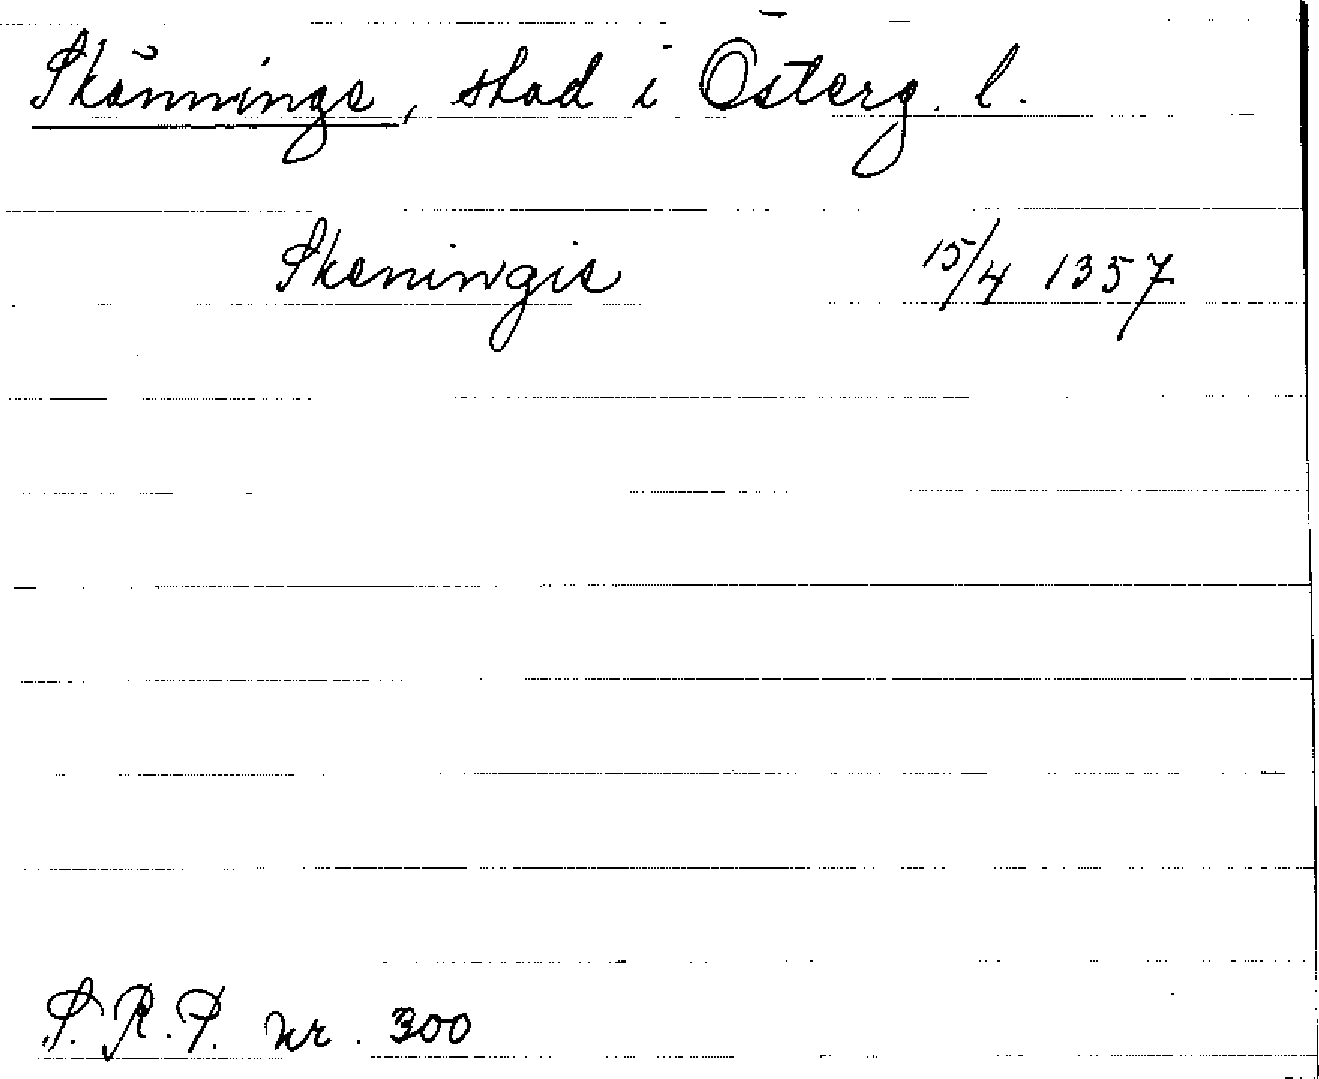 Skänninge, stad i Österg. l.
Skeningie 15/4 1357
S.R.P. nr. 300